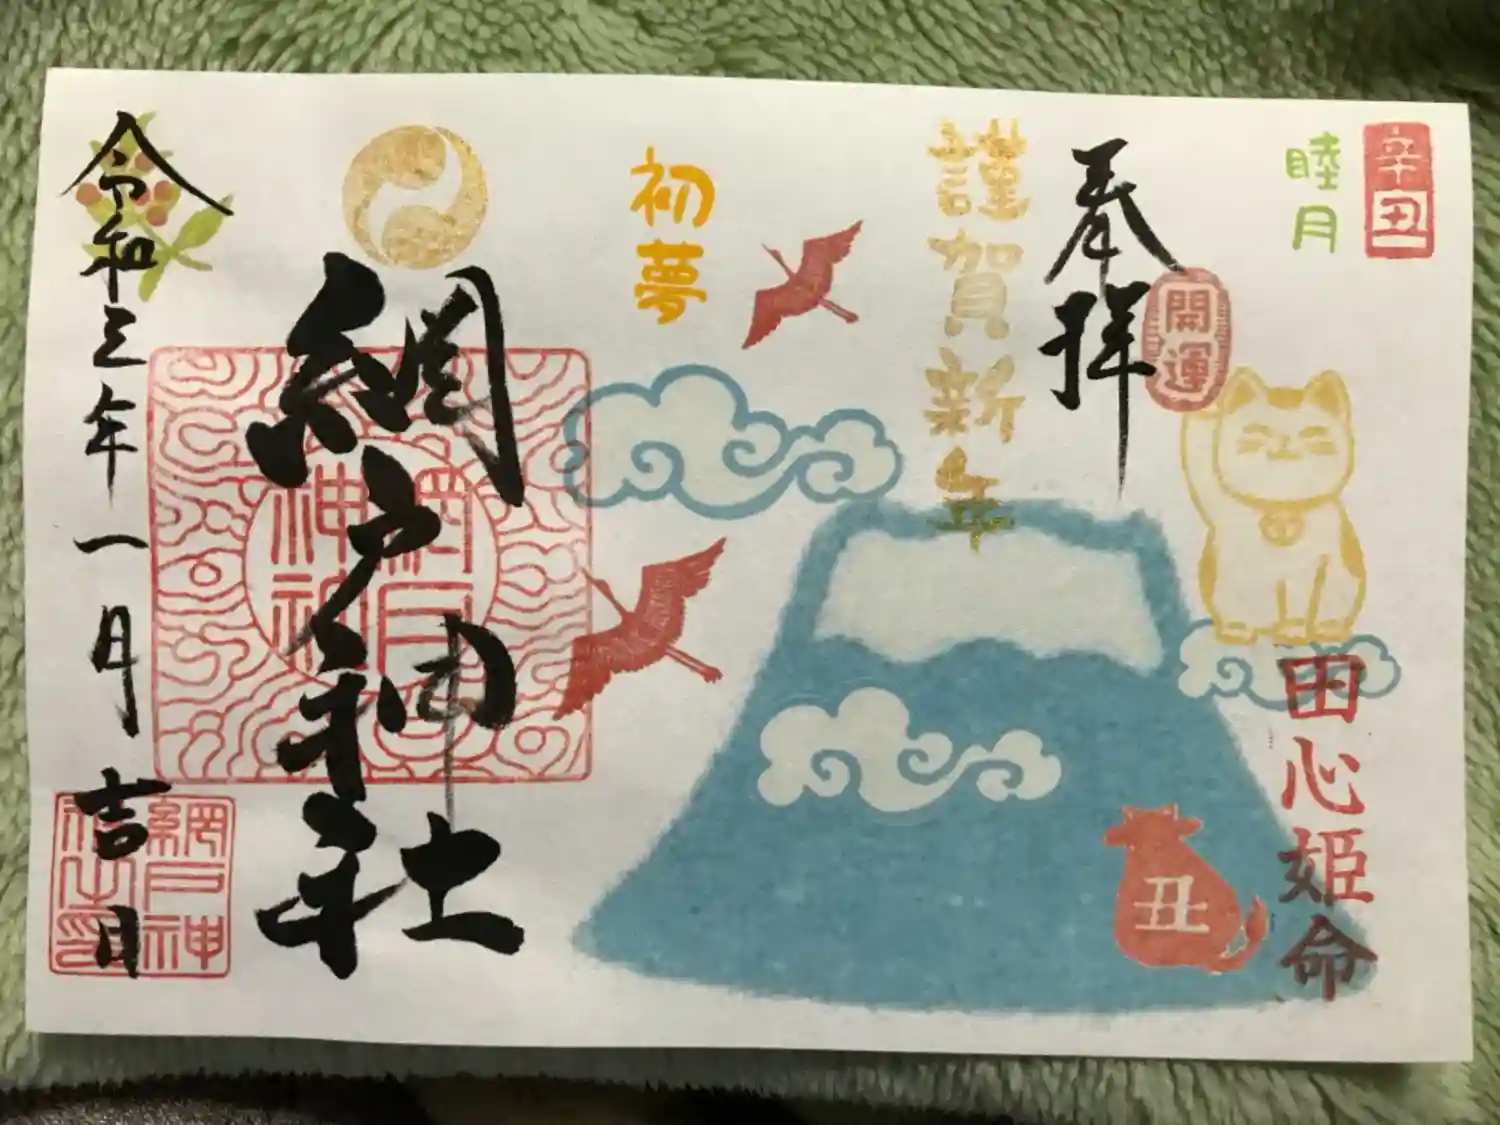 辛丑
睦月
奉拝
開運
田心姫命
謹賀新年
丑
初夢
網戸神社
網戸神社
令和三年一月吉日
網戸神社之印